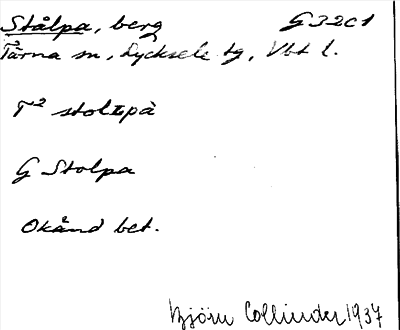 Stålpa, berg G32C1
Tärna sn, Lycksele tg, Vbt l.
G Stolpa
Okänd bet.
Björn Collinder 1937